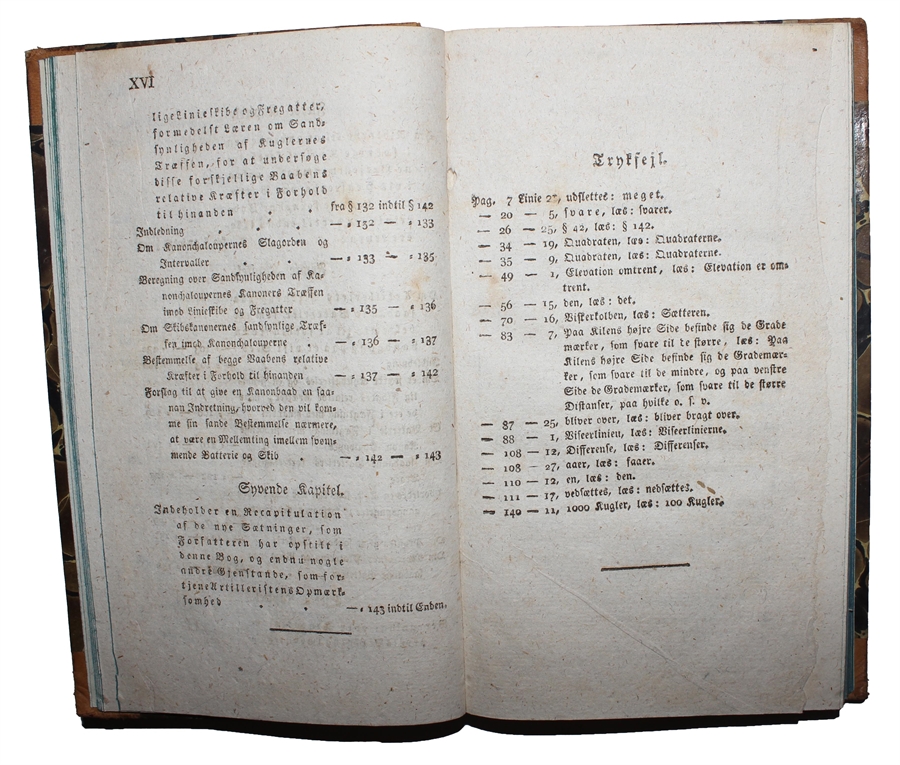 XVI
lige Linieskibe og Fregatter,
formedelst Læren om Sand-
synligheden af Kuglernes
Træffen, for at undersøge
disse forskjellige Vaabens
relative Kræfter i Forhold
til hinanden . . fra § 132 indtil § 142
Indledning . . . . — = 132 — = 133
Om Kanonchaloupernes Slagorden og
Intervaller . . . — = 133 — = 135
Beregning over Sandsynligheden af Ka-
nonchaloupernes Kanoners Træffen
imod Linieskibe og Fregatter — = 135 — = 136
Om Skibskanonernes sandsynlige Træf-
fen imod Kanonchalouperne . — = 136 — = 137
Bestemmelse af begge Vaabens relative
Kræfter i Forhold til hinanden — = 137 — = 142
Forslag til at give en Kanonbaad en saa-
nan Indretning, hvorved den vil kom-
me sin sande Bestemmelse nærmere,
at være en Mellemting imellem svøm-
mende Batterie og Skib . — = 142 — = 143
Syvende Kapitel.
Indeholder en Recapitulation
af de nye Sætninger, som
Forfatteren har opstilt i
denne Bog, og endnu nogle
andre Gjenstande, som for-
tjene Artilleristens Opmærk-
somhed . . . — = 143 indtil Enden.
Trykfejl.
Pag. 7 Linie 27, udslettes: meget.
— 20 — 5, svare, læs: svarer.
— 26 — 25, § 42, læs: § 142.
— 34 — 19, Quadraten, læs: Quadraterne.
— 35 — 9, Quadraten, læs: Quadraterne.
— 49 — 1, Elevation omtrent, læs: Elevation er om-
trent.
— 56 — 15, den, læs: det.
— 70 — 16, Viskerkolben, læs: Sætteren.
— 83 — 7, Paa Kilens højre Side befinde sig de Grade
mærker, som svare til de større, læs: Paa
Kilens højre Side befinde sig de Grademær-
ker, som svare til de mindre, og paa venstre
Side de Grademærker, som svare til de større
Distanser, paa hvilke o. s. v.
— 87 — 25, bliver over, læs: bliver bragt over.
— 88 — 1, Viseerlinien, læs: Viseerlinierne.
— 108 — 12, Differense, læs: Differenser.
— 108 — 27, aaer, læs: faaer.
— 110 — 12, en, læs: den.
— 111 — 17, vedsættes, læs: nedsættes.
— 140 — 11, 1000 Kugler, læs: 100 Kugler.